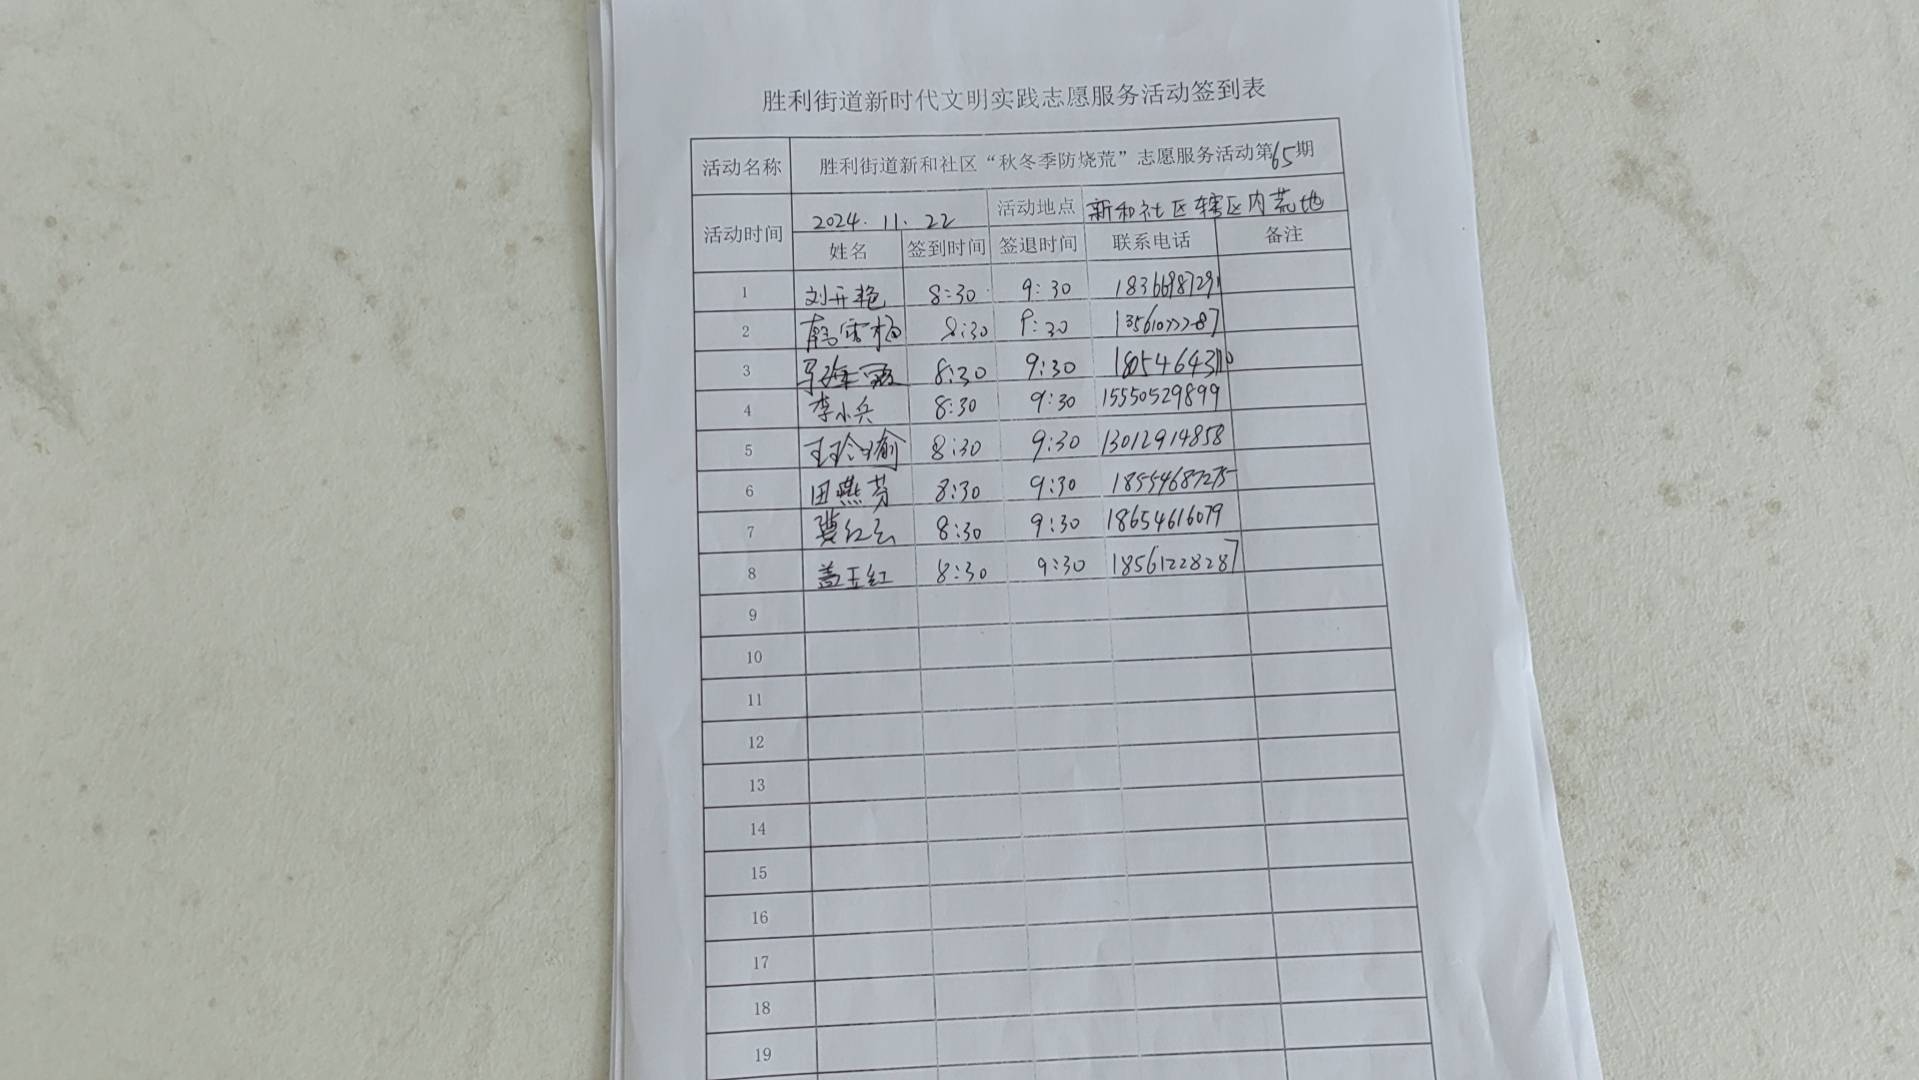 胜利街道新时代文明实践志愿服务活动签到表
活动名称 胜利街道新和社区“秋冬季防烧荒”志愿服务活动第65期
活动时间 2024.11.22 活动地点 新和社区辖区内荒地
姓名 签到时间 签退时间 联系电话 备注
1 刘开艳 8:30 9:30 18366987291
2 韩雪梅 8:30 9:30 13561077787
3 8:30 9:30
4 李小兵 8:30 9:30 15550529899
5 王玲瑜 8:30 9:30 13012914858
6 田燕芳 8:30 9:30 18554687275
7 冀红云 8:30 9:30 18654616079
8 盖玉红 8:30 9:30 18561228287
9
10
11
12
13
14
15
16
17
18
19